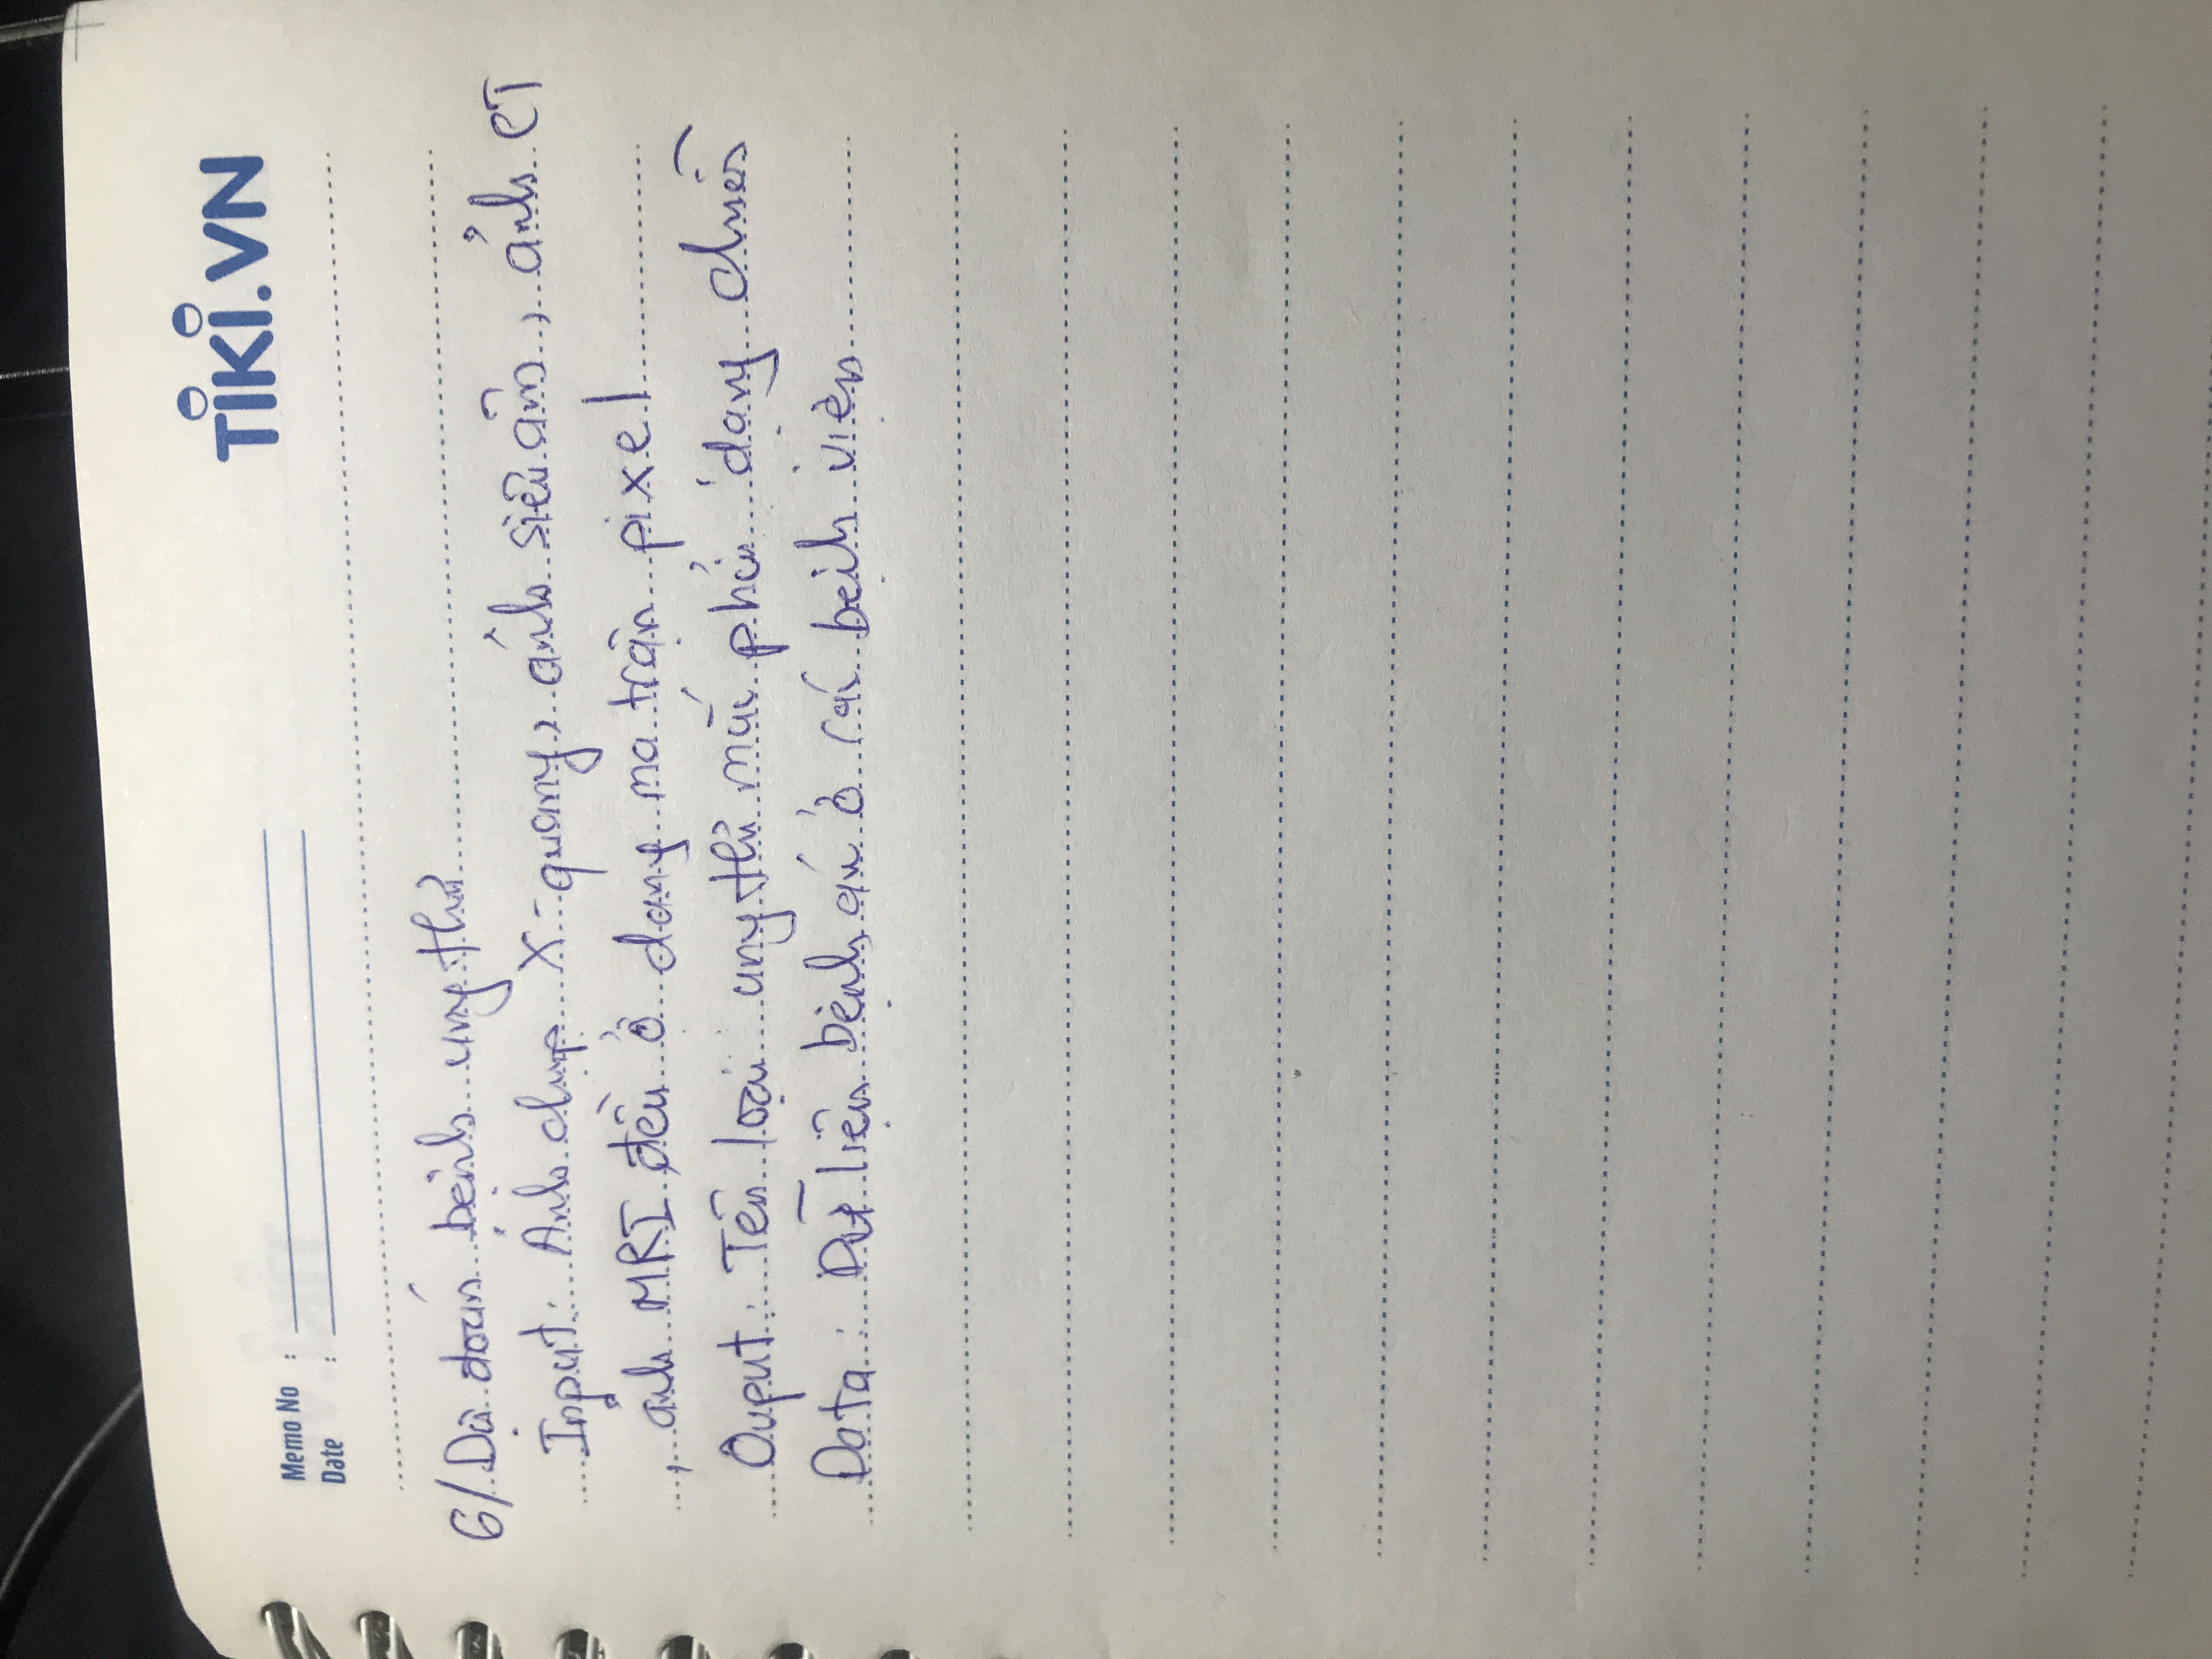 TIKI.VN
Memo No :
Date :
6/ Dự đoán bệnh ung thư
Input: Ảnh chụp X-quang, ảnh siêu âm, ảnh CT
, ảnh MRI, đều ở dạng ma trận pixel
Ouput: Tên loại ung thư mắc phải dạng chuỗi
Data: Dữ liệu bệnh án ở các bệnh viện